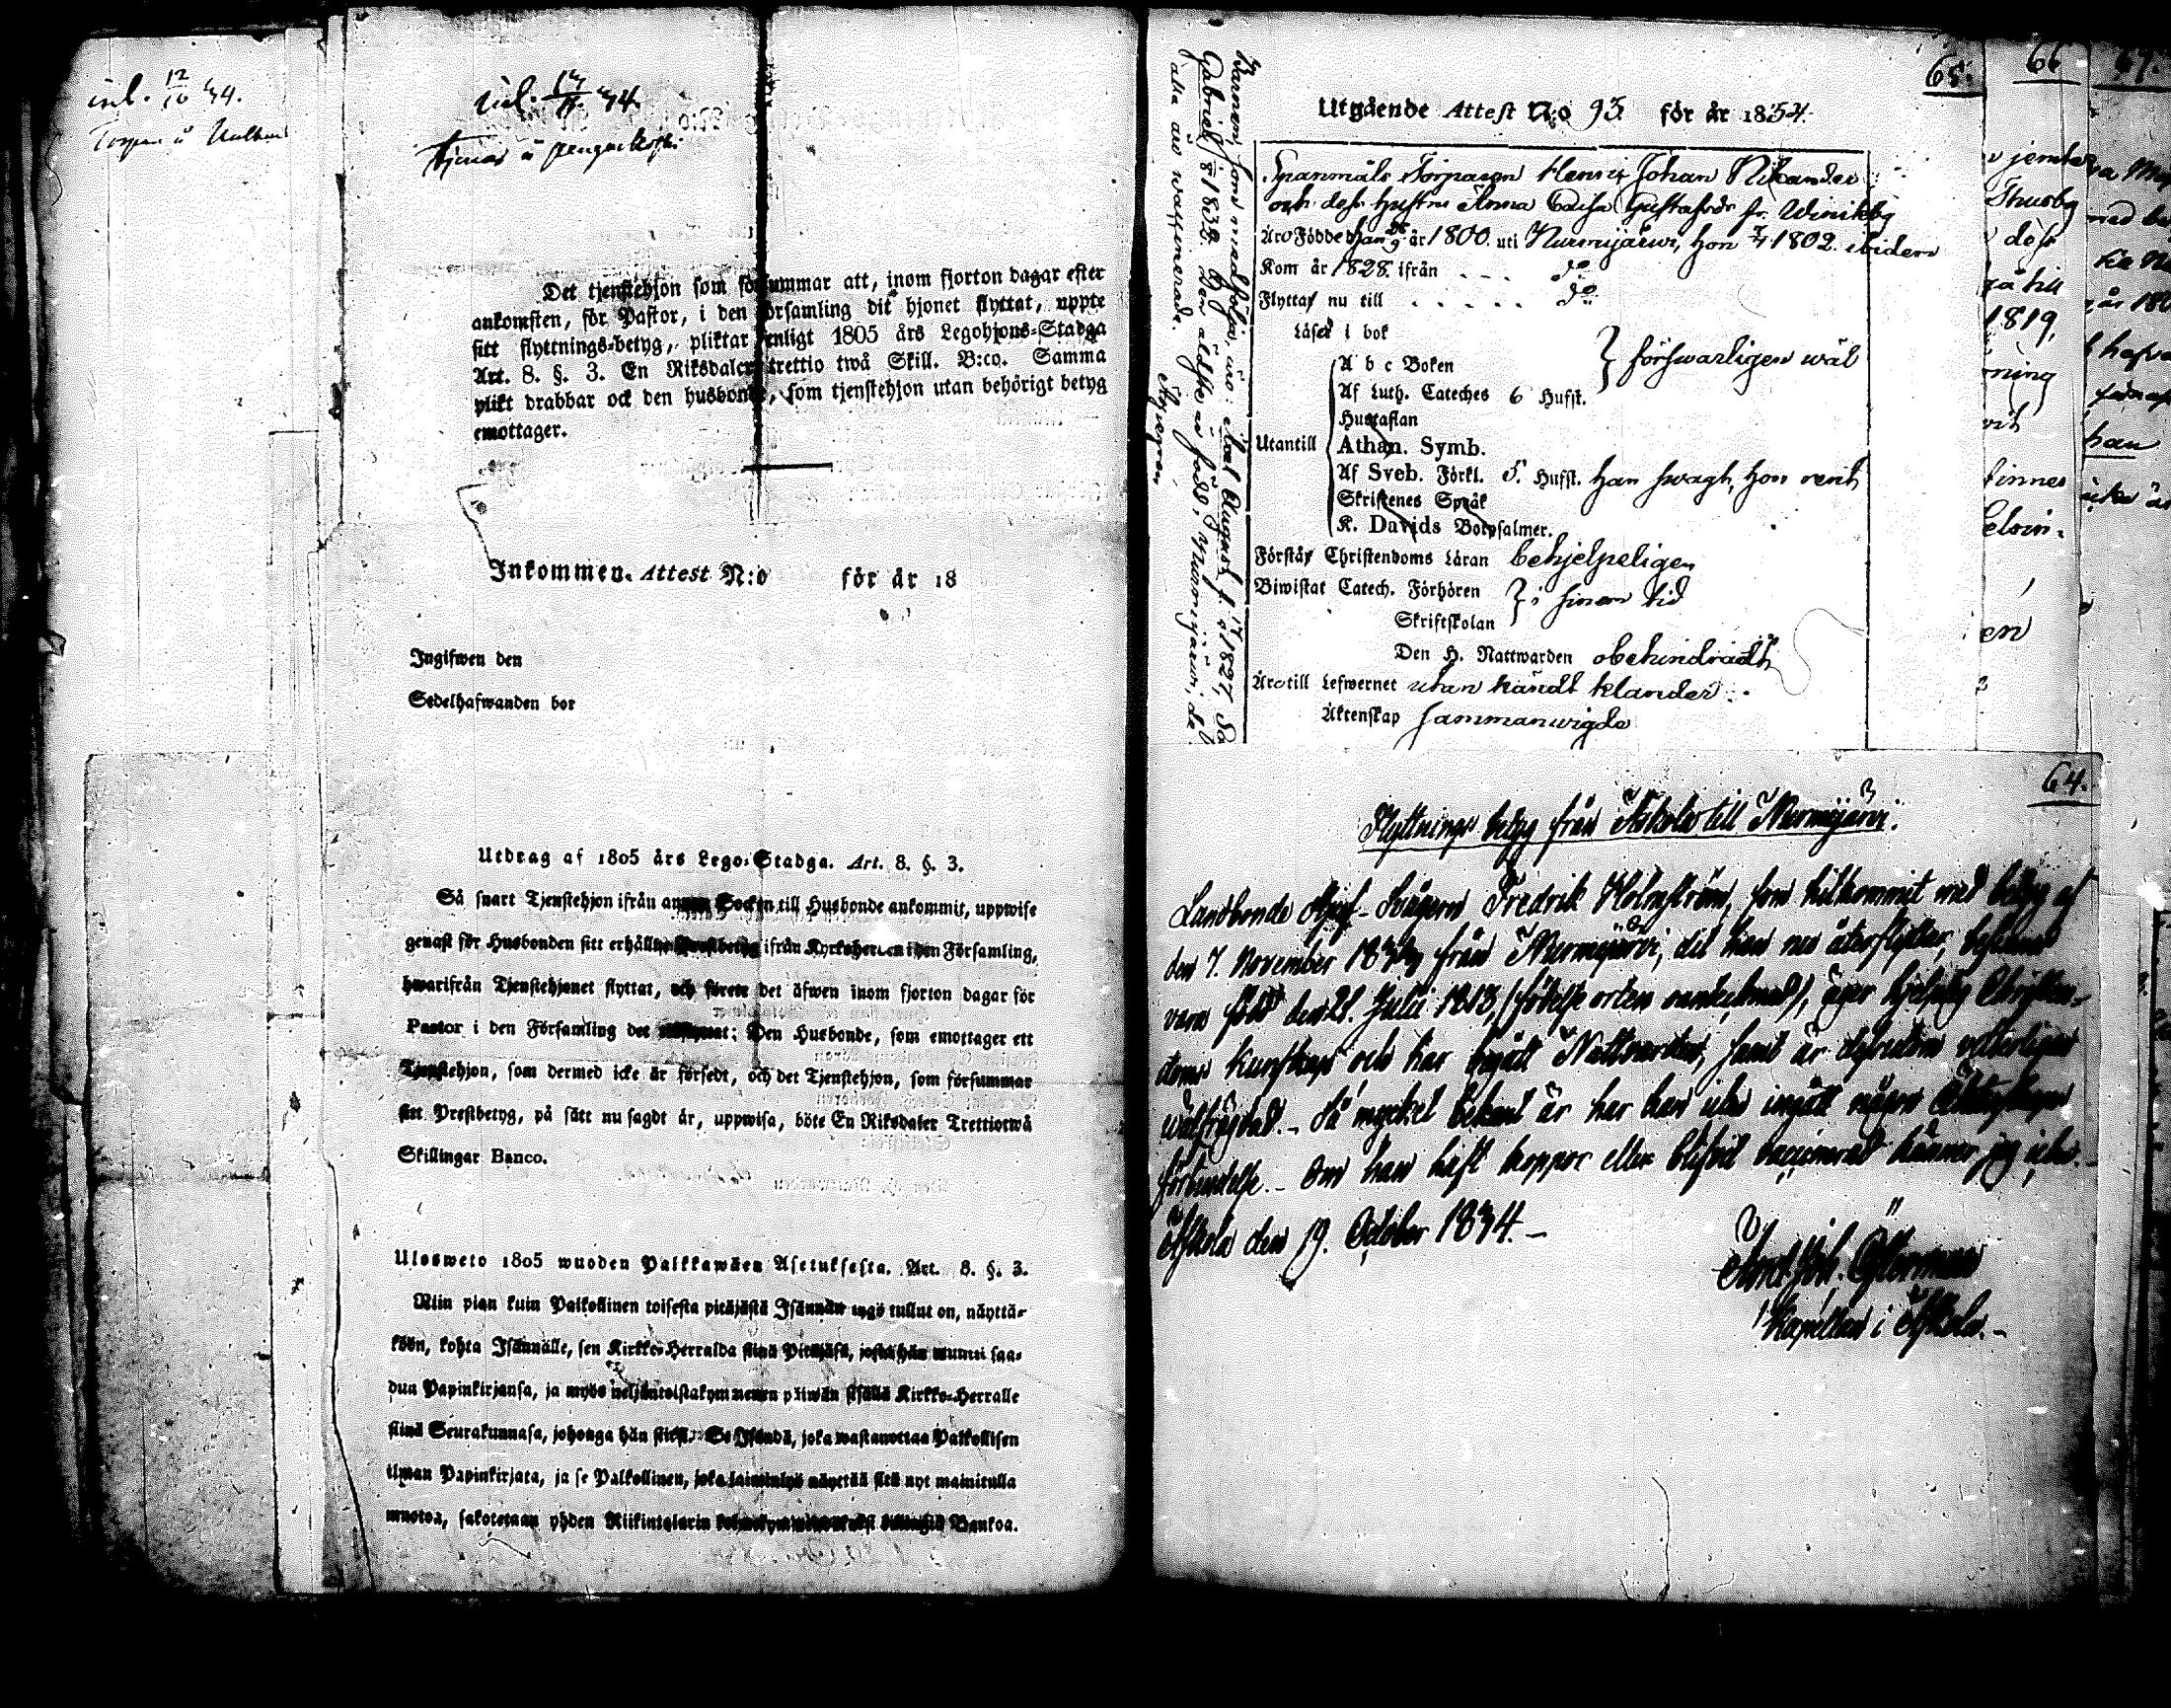 inl. 12/10 34.
Torpare å
inl. 34.
Tjenar å
Det tjenstehjon som försummar att, inom fjorton dagar efter
ankomsten, för Pastor, i den församling dit hjonet flyttat, uppte
sitt flyttnings-betyg, pliktar enligt 1805 års Legohjons-Stadga
Art. 8. §. 3. En Riksdaler trettio twå Skill. B:co. Samma
plikt drabbar ock den husbonde, som tjenstehjon utan behörigt betyg
emottager.
Inkommen. Attest N:o för år 18
Ingifwen den
Sedelhafwanden bor
Utdrag af 1805 års Lego-Stadga. Art. 8. §. 3.
Så snart Tjenstehjon ifrån annan Socken till Husbonde ankommit, uppwise
genast för Husbonden sitt erhållne Prestbetyg ifrån Kyrkoherren i den Församling,
hwarifrån Tjenstehjonet flyttat, och förete det äfwen inom fjorton dagar för
Pastor i den Församling det: Den Husbonde, som emottager ett
Tjenstehjon, som dermed icke är försedt, och det Tjenstehjon, som försummar
sitt Prestbetyg, på sätt nu sagdt är, uppwisa, böte En Riksdaler Trettiotwå
Skillingar Banco.
Ulosweto 1805 wuoden Palkkawäen Asetuksesta. Art. 8. §. 3.
Niin pian kuin Palkollinen toisesta pitäjästä Isännän tygö tullut on, näyttä-
köön, kohta Isännälle, sen Kirkko-Herralda siinä Pitäjäsä, josta hän muutti saa-
dun Papinkirjansa, ja myös neljäntoistakymmenen päiwän sisällä Kirkko-Herralle
siinä Seurakunnasa, johonga hän siirsi. Se Isändä, joka wastanottaa Palkollisen
ilman Papinkirjata, ja se Palkollinen, joka laiminlyö näyttää sitä nyt mainitulla
muotoa, sakotetaan yhden Riikintalarin kolmekymmentäkaksi killingiä Bankoa.
65.
66
67.
Utgående Attest N:o 93. för år 1834.
Spanmåls Torparen Henric Johan Nikander
och dess hustru Anna Caisa Gustafsdr fr. Winikby
Äro Födde han år 1800. uti Nurmijärwi, hon 1802. ibidem
Kom år 1828. ifrån . . . . do
Flyttar nu till . . . . . do
Läser i bok
A b c Boken
försvarligen wäl
Af Luth. Cateches 6 Hufst.
Hustaflan
Utantill
Athan. Symb.
Af Sveb. Förkl. 5. Hufst. han swagt, hon rent
Skriftenes Språk
K. Davids Botpsalmer.
Förstår Christendoms Läran behjelpeligen
Biwistat Catech. Förhören
i sinom tid
Skriftskolan
Den H. Nattwarden obehindradt
Äro till Lefwernet utan kändt klander.
Äktenskap sammanwigde
Barnen, som medfölja, äro: Axel August f. 1827, do
Gabriel 1832. Den äldste är född i Nurmijärwi, de
äro vaccinerade.
64.
Flyttnings betyg från Askola till Nurmijärvi.
Landbonde Svågern Fredrik Holmström, som hitkommit med betyg af
den 7. November från Nurmijärvi, dit han nu återflyttar,
vara född den 21. Julii 1818, (födelse orten oantecknad), äger hjelplig Christen-
doms kunskap och har begått Nattvarden, samt är dessutom
wälfräjdad. _ Så mycket bekant är har han icke ingått någon Äktenskaps
förbindelse. _ Om han haft koppor eller blifvit vaccinerad känner jag icke. _
Askola den 19. October 1834. _
Joh. Österman
Kapellan i Askola. _